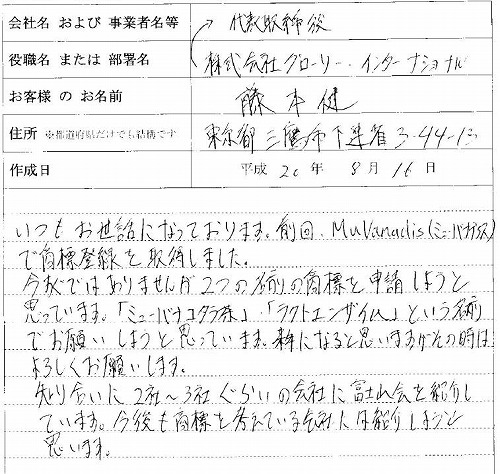 会社名 および 事業者名等 代表取締役
役職名 または 部署名 株式会社グローリー・インターナショナル
お客様 の お名前 藤本健
住所 ※都道府県だけでも結構です 東京都三鷹市下連雀3-44-13
作成日 平成 20 年 8 月 16 日
いつもお世話になっております。前回、MuVanadis(ミューバナディス)
で商標登録を取得しました。
今すぐではありませんが2つの名前の商標を申請しようと
思っています。「ミューバナコタラ茶」・「ラクトエンザイム」という名前
でお願いしようと思っています。来年になると思いますがその時は
よろしくお願いします。
知り合いに2社〜3社ぐらいの会社に富士山会を紹介し
ています。今後も商標を考えている会社には紹介しようと
思います。